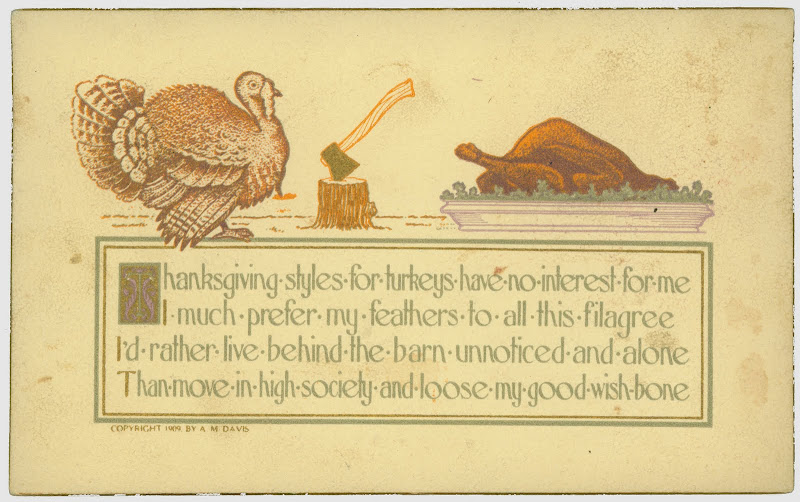 Thanksgiving·styles·for·turkeys·have·no·interest·for·me
I·much·prefer·my·feathers·to·all·this·filagree
I'd·rather·live·behind·the·barn·unnoticed·and·alone
Than·move·in·high·society·and·loose·my·good·wish·bone
COPYRIGHT 1909 BY A. M. DAVIS